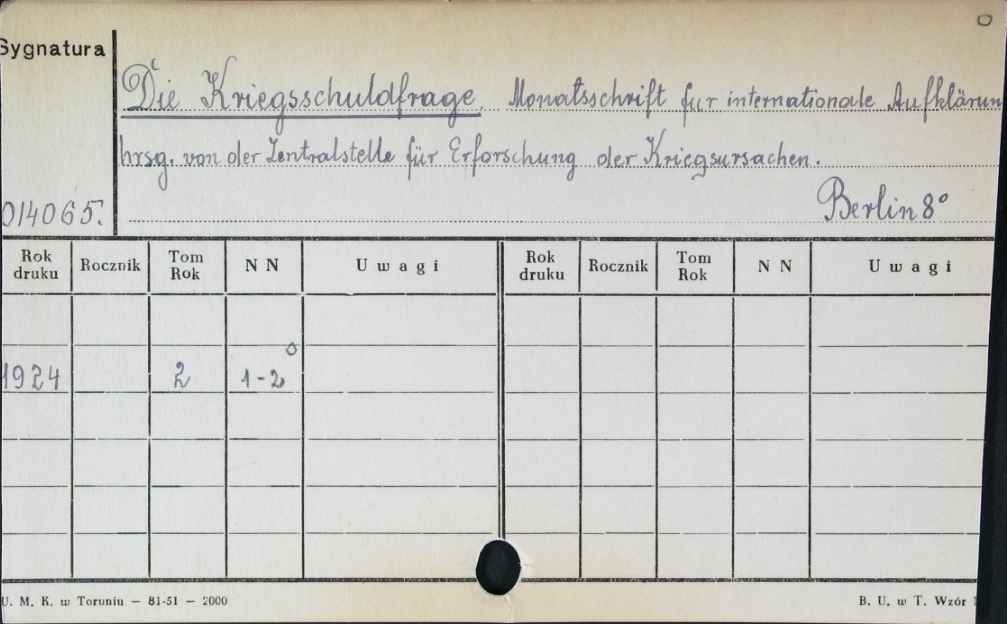 Sygnatura
Die Kriegsschuldfrage. Monatsschrift fur internationale Aufklärun
hrsg. von der Zentralstelle für Erforschung der Kriegsursachen.
014065. Berlin 8°
Rok druku Rocznik Tom Rok N N Uwagi Rok druku Rocznik Tom Rok N N Uwagi
1924 2 1-2
U. M. K. w Toruniu — 81-51 — 2000 B. U. w T. Wzór